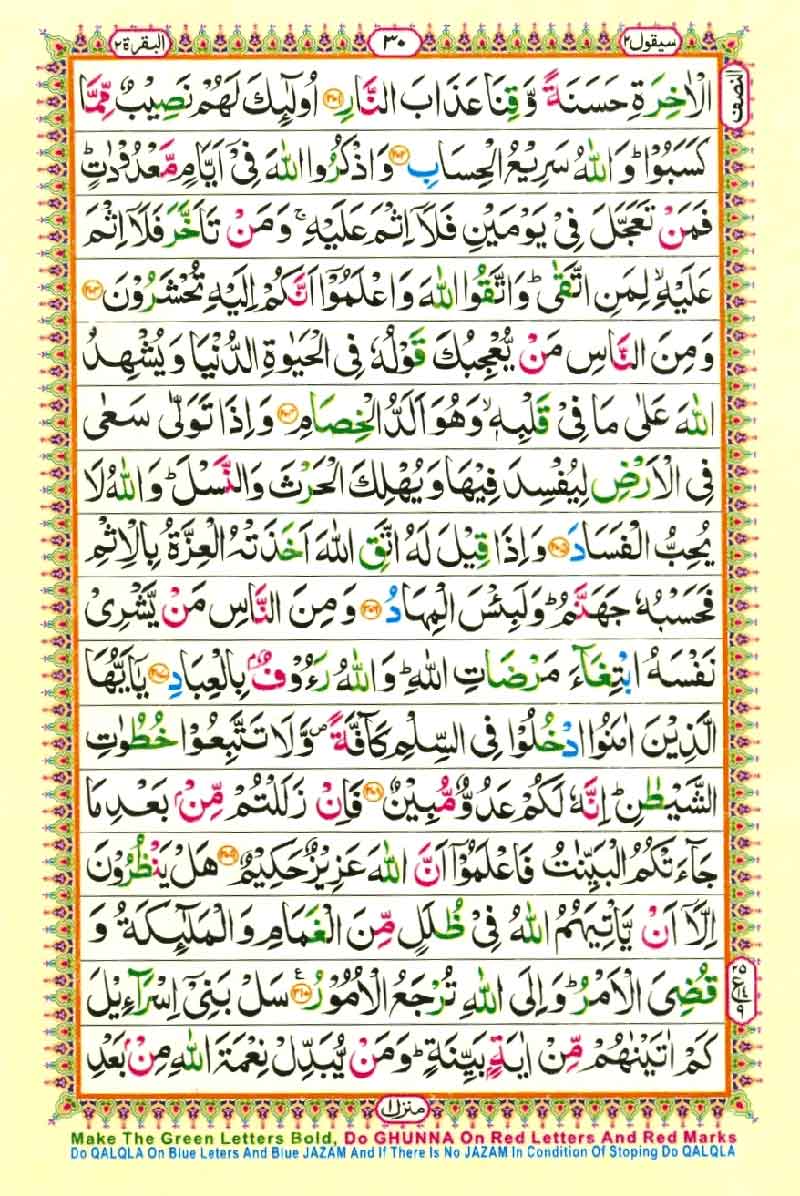 سيقول ٢ ٣٠ البقرة ٢
النصف
الْاٰخِرَةِ حَسَنَةً وَّقِنَا عَذَابَ النَّارِ ﴿۲۰۱﴾ اُولٰٓئِكَ لَهُمْ نَصِيْبٌ مِّمَّا
كَسَبُوْا ؕ وَاللّٰهُ سَرِيْعُ الْحِسَابِ ﴿۲۰۲﴾ وَاذْكُرُوا اللّٰهَ فِىْٓ اَيَّامٍ مَّعْدُوْدٰتٍ ؕ
فَمَنْ تَعَجَّلَ فِىْ يَوْمَيْنِ فَلَاۤ اِثْمَ عَلَيْهِ ۚ وَمَنْ تَاَخَّرَ فَلَاۤ اِثْمَ
عَلَيْهِ ۙ لِمَنِ اتَّقٰى ؕ وَاتَّقُوا اللّٰهَ وَاعْلَمُوْٓا اَنَّكُمْ اِلَيْهِ تُحْشَرُوْنَ ﴿۲۰۳﴾
وَمِنَ النَّاسِ مَنْ يُّعْجِبُكَ قَوْلُهٗ فِى الْحَيٰوةِ الدُّنْيَا وَيُشْهِدُ
اللّٰهَ عَلٰى مَا فِىْ قَلْبِهٖ ۙ وَهُوَ اَلَدُّ الْخِصَامِ ﴿۲۰۴﴾ وَاِذَا تَوَلّٰى سَعٰى
فِى الْاَرْضِ لِيُفْسِدَ فِيْهَا وَيُهْلِكَ الْحَرْثَ وَالنَّسْلَ ؕ وَاللّٰهُ لَا
يُحِبُّ الْفَسَادَ ﴿۲۰۵﴾ وَاِذَا قِيْلَ لَهُ اتَّقِ اللّٰهَ اَخَذَتْهُ الْعِزَّةُ بِالْاِثْمِ
فَحَسْبُهٗ جَهَنَّمُ ؕ وَلَبِئْسَ الْمِهَادُ ﴿۲۰۶﴾ وَمِنَ النَّاسِ مَنْ يَّشْرِىْ
نَفْسَهُ ابْتِغَآءَ مَرْضَاتِ اللّٰهِ ؕ وَاللّٰهُ رَءُوْفٌۢ بِالْعِبَادِ ﴿۲۰۷﴾ يٰٓاَيُّهَا
الَّذِيْنَ اٰمَنُوا ادْخُلُوْا فِى السِّلْمِ كَآفَّةً ۪ وَّلَا تَتَّبِعُوْا خُطُوٰتِ
الشَّيْطٰنِ ؕ اِنَّهٗ لَكُمْ عَدُوٌّ مُّبِيْنٌ ﴿۲۰۸﴾ فَاِنْ زَلَلْتُمْ مِّنْۢ بَعْدِ مَا
جَآءَتْكُمُ الْبَيِّنٰتُ فَاعْلَمُوْٓا اَنَّ اللّٰهَ عَزِيْزٌ حَكِيْمٌ ﴿۲۰۹﴾ هَلْ يَنْظُرُوْنَ
اِلَّاۤ اَنْ يَّاْتِيَهُمُ اللّٰهُ فِىْ ظُلَلٍ مِّنَ الْغَمَامِ وَالْمَلٰٓئِكَةُ وَ
قُضِىَ الْاَمْرُ ؕ وَاِلَى اللّٰهِ تُرْجَعُ الْاُمُوْرُ ﴿۲۱۰﴾ سَلْ بَنِىْٓ اِسْرَآءِيْلَ
٢٥ ع ١٤ ٩
كَمْ اٰتَيْنٰهُمْ مِّنْ اٰيَةٍۭ بَيِّنَةٍ ؕ وَمَنْ يُّبَدِّلْ نِعْمَةَ اللّٰهِ مِنْۢ بَعْدِ
منزل ١
Make The Green Letters Bold, Do GHUNNA On Red Letters And Red Marks
Do QALQLA On Blue Leters And Blue JAZAM And If There Is No JAZAM In Condition Of Stoping Do QALQLA